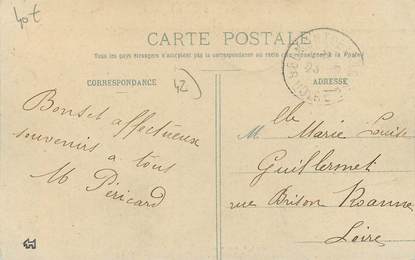 40€
CARTE POSTALE
Tous les pays étrangers n'acceptent pas la correspondance au recto (se renseigner à la Poste)
CORRESPONDANCE
ADRESSE
42
Bons et affectueux
souvenirs à tous
M Péricard
Mlle Marie Louise
Guillermet
rue Brison Roanne
Loire